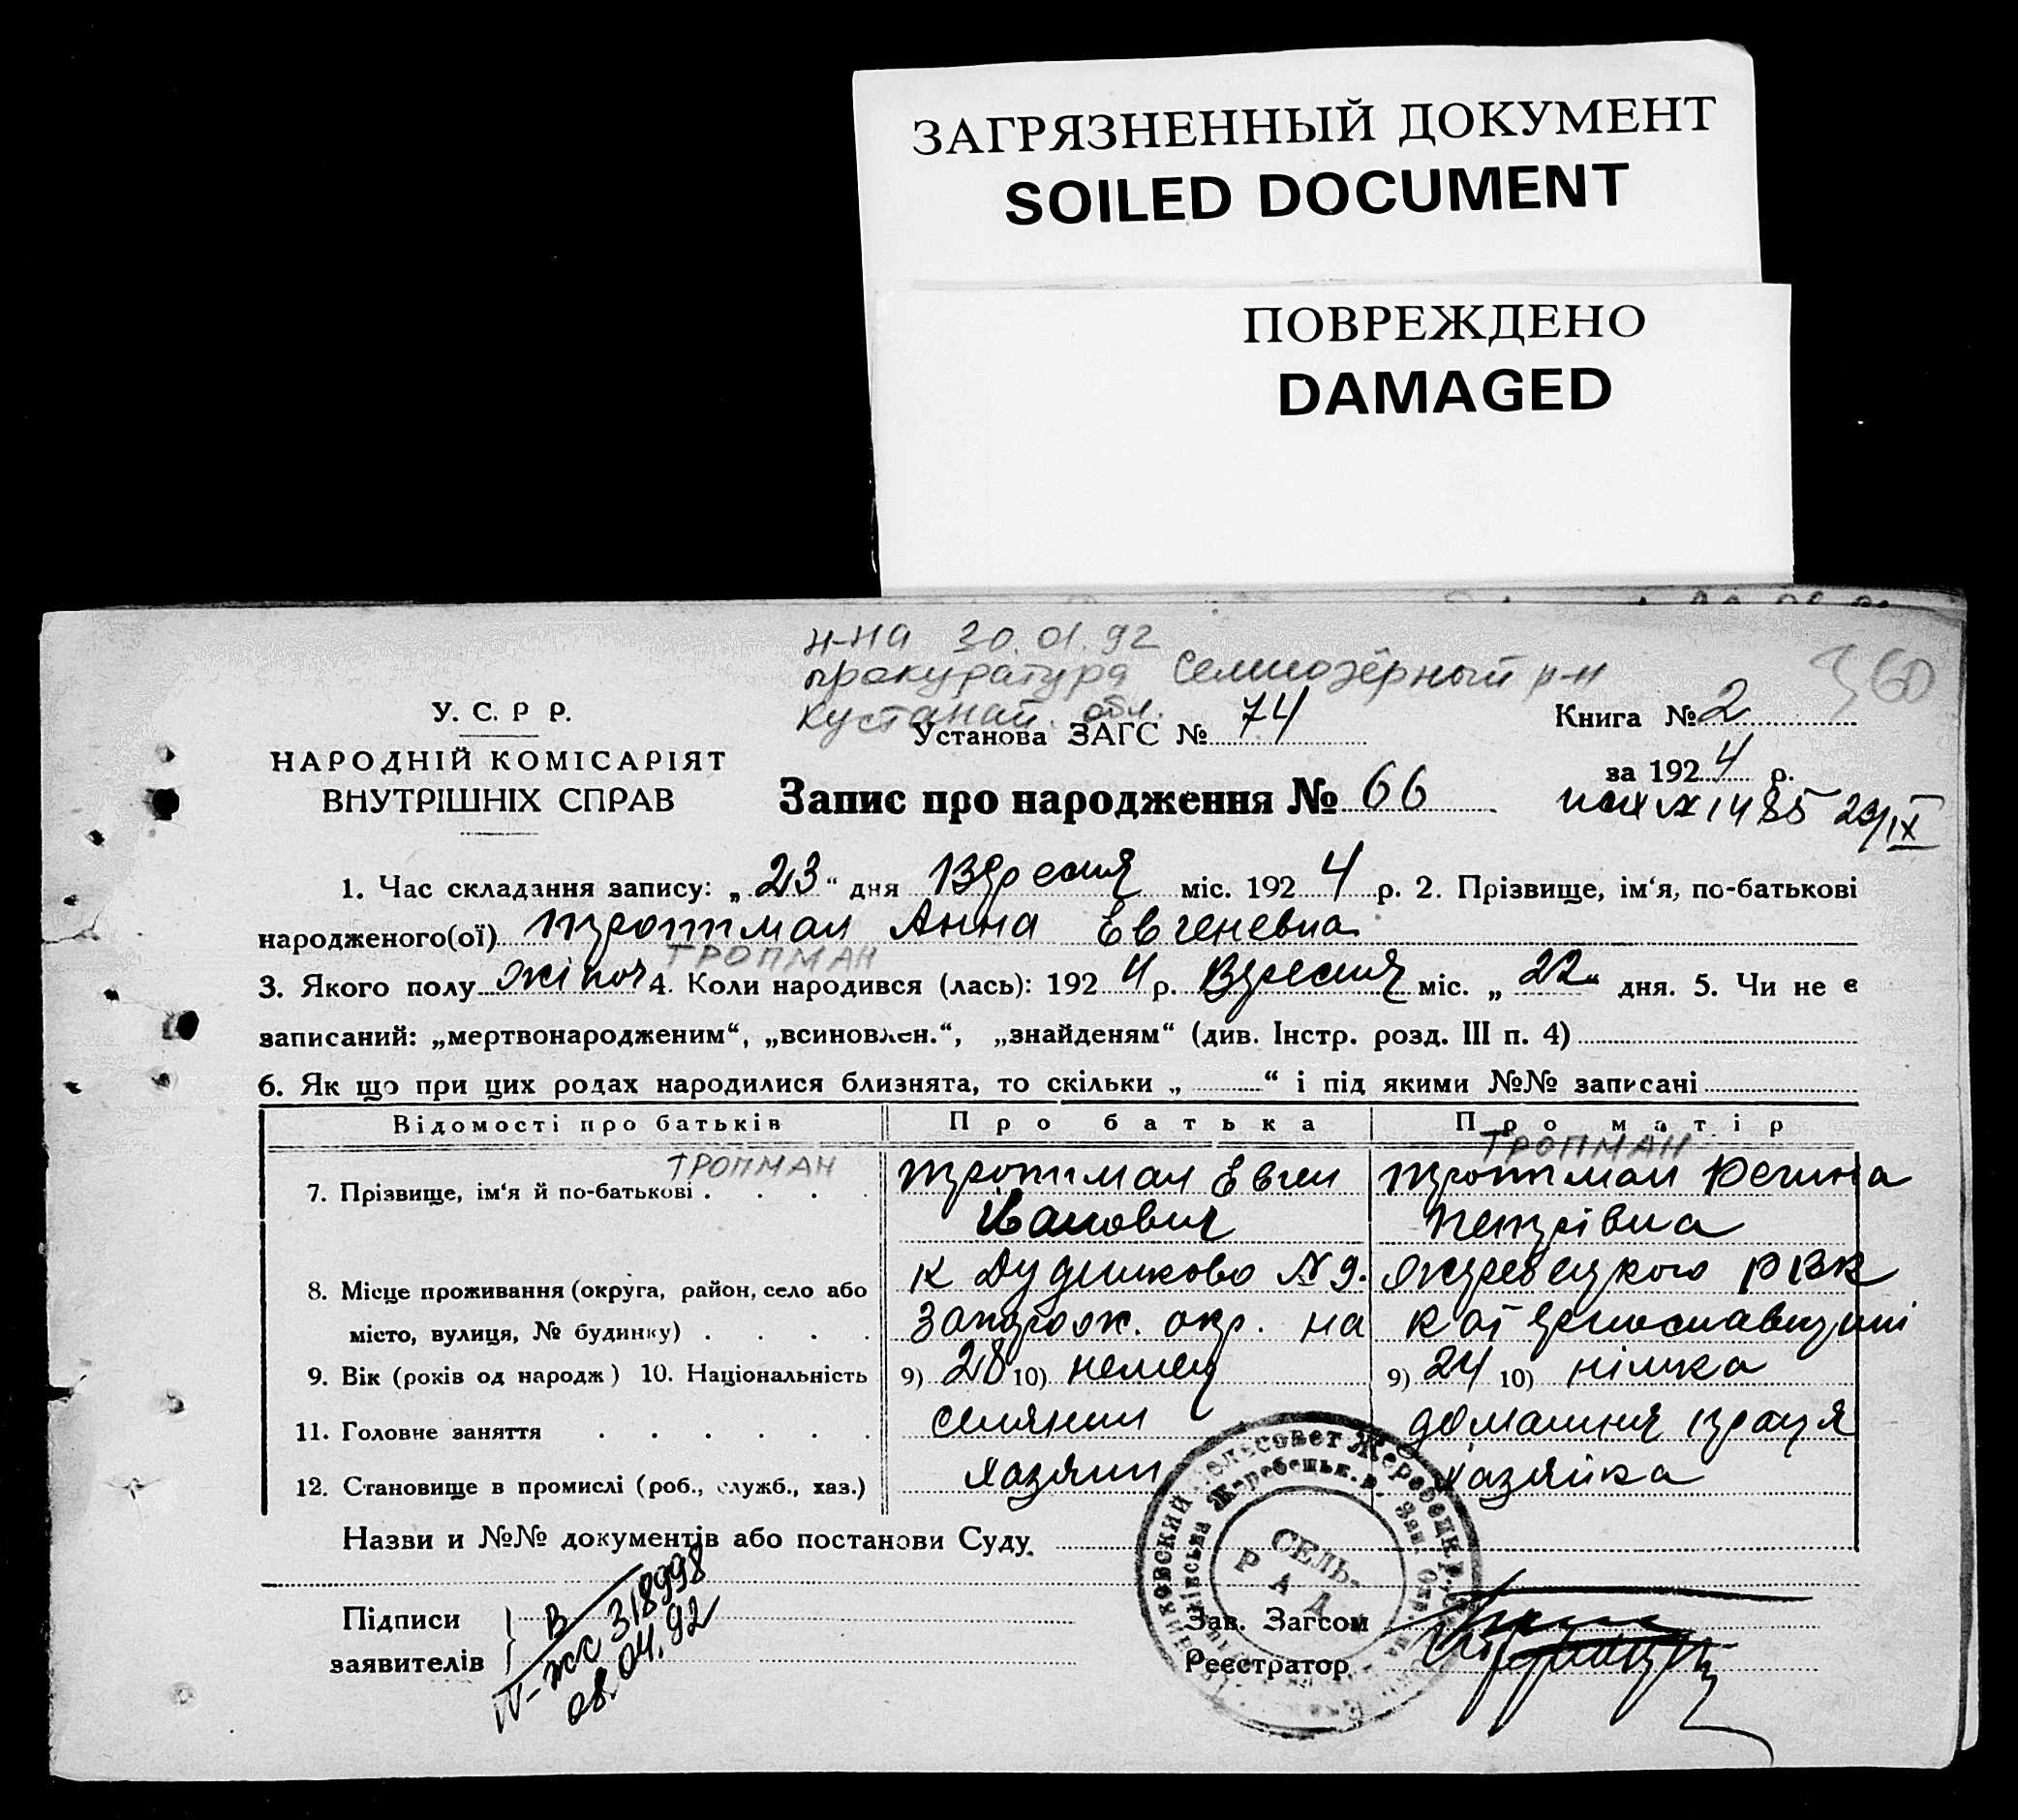 ЗАГРЯЗНЕННЫЙ ДОКУМЕНТ
SOILED DOCUMENT
ПОВРЕЖДЕНО
DAMAGED
н-на 30.01.92
прокуратура Семиозёрный р-н
Кустанай. обл.
360
У. С. Р Р.
НАРОДНІЙ КОМІСАРІЯТ
ВНУТРІШНІХ СПРАВ
Установа ЗАГС № 74
Книга № 2
за 1924 р.
Запис про народження № 66
1485 29/IX
1. Час складання запису: „23“ дня Вересня міс. 1924 р. 2. Прізвище, ім‘я, по-батькові
народженого(ої) Тропman Анна Евгеневна
ТРОПМАН
3. Якого полу жіноч 4. Коли народився (лась): 1924 р. Вересня міс. „22“ дня. 5. Чи не є
записаний: „мертвонародженим“, „всиновлен.“, „знайденям“ (див. Інстр. розд. III п. 4)
6. Як що при цих родах народилися близнята, то скільки „ “ і під якими №№ записані
Відомості про батьків Про батька Про матір
ТРОПМАН ТРОПМАН
7. Прізвище, ім‘я й по-батькові . . . . Тропман Евген Тропман Регина
Иванович Петрівна
8. Місце проживання (округа, район, село або к Дудчиково № 9. Жеребецкого РВК
місто, вулиця, № будинку) . . . . Запорож. окр. на Катеринославщині
9. Вік (років од народж) 10. Національність 9) 28 10) немец 9) 24 10) німка
11. Головне заняття . . . . . . селянин домашня праця
12. Становище в промислі (роб., служб., хаз.) хазяин хазяйка
Назви и №№ документів або постанови Суду.
Підписи
заявителів
В
IV-жс 318998
08.04.92
СЕЛЬ-
РАДА
Зав. Загсом
Реєстратор